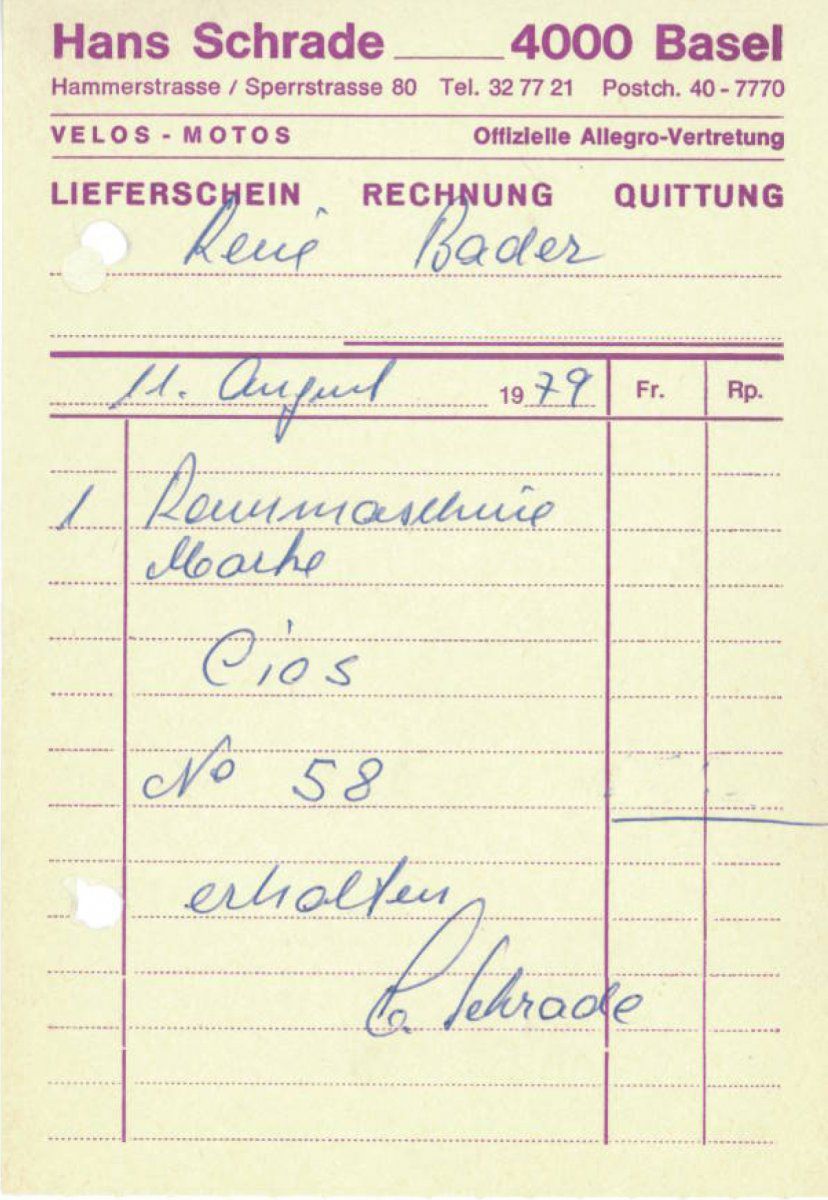 Hans Schrade 4000 Basel
Hammerstrasse / Sperrstrasse 80 Tel. 32 77 21 Postch. 40 - 7770
VELOS - MOTOS Offizielle Allegro-Vertretung
LIEFERSCHEIN RECHNUNG QUITTUNG
René Bader
11. August 1979 Fr. Rp.
1 Rennmaschine
Marke
Cios
No 58
erhalten
C. Schrade